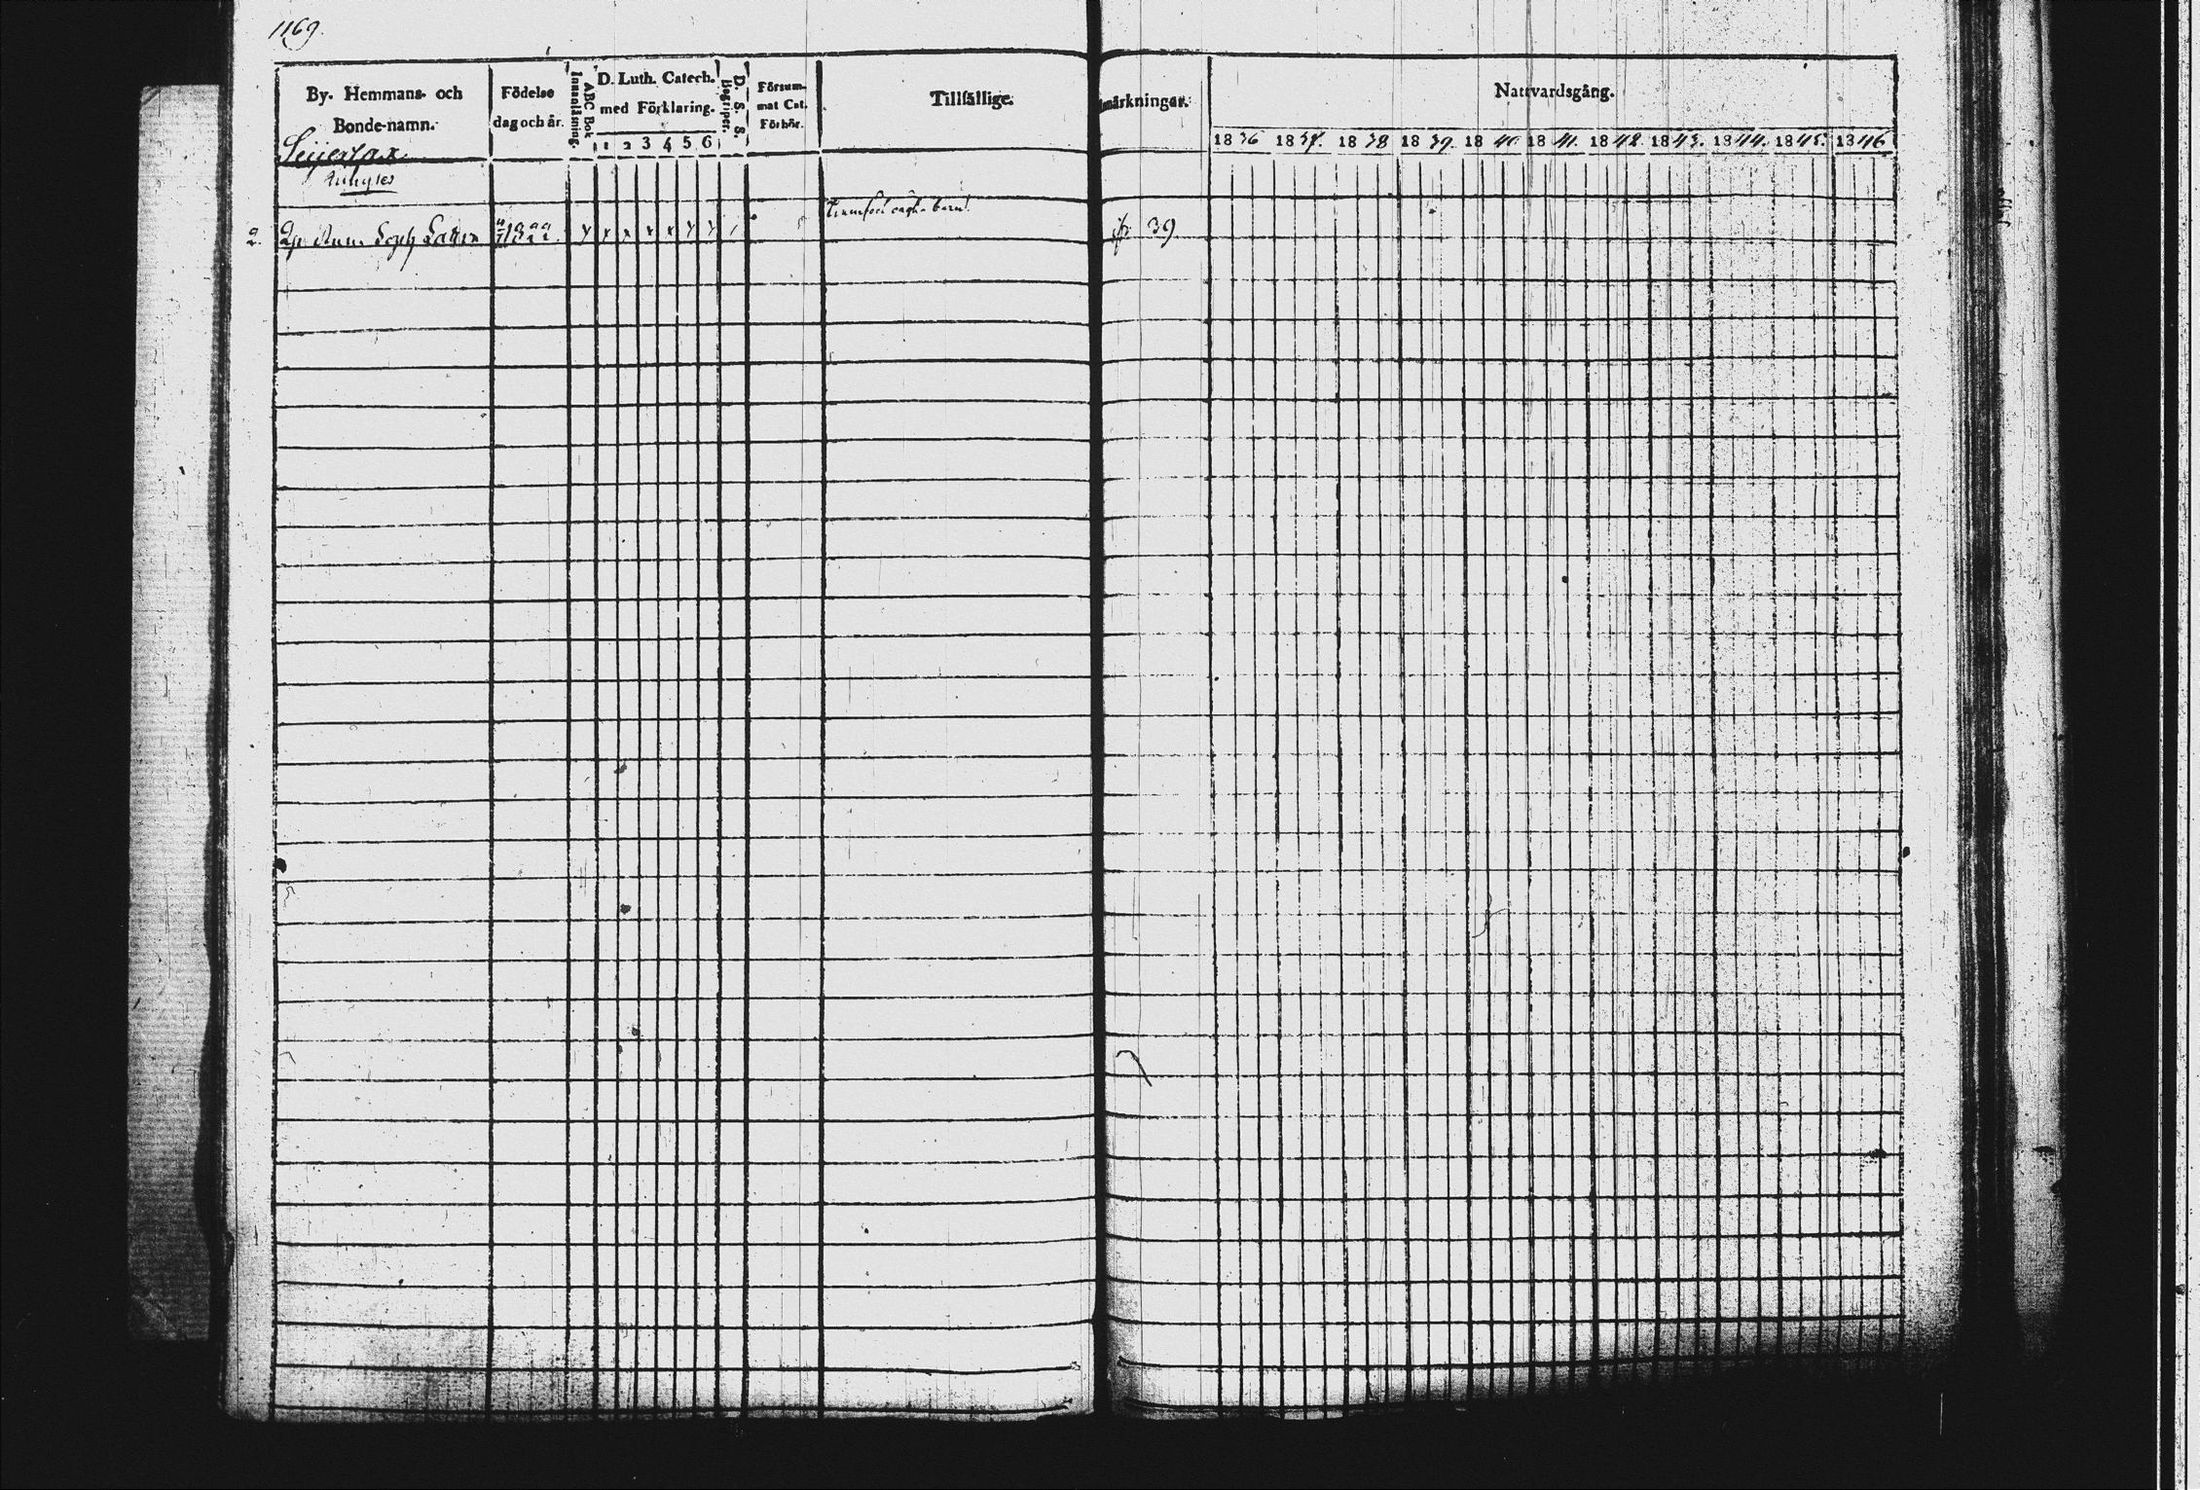 1169.
By- Hemmans- och
Bonde-namn.
Födelse
dag och år.
ABC Bok
Innanläsning.
D. Luth. Catech.
med Förklaring.
1 2 3 4 5 6
D. S. S.
Begriper.
Försum-
mat Cat.
Förhör.
Tillfällige
märkningar.
Nattvardsgång.
1836 1837. 1838 1839. 1840. 1841. 1842. 1843. 1844. 1845. 1846
1822. x x x x x x x
39.